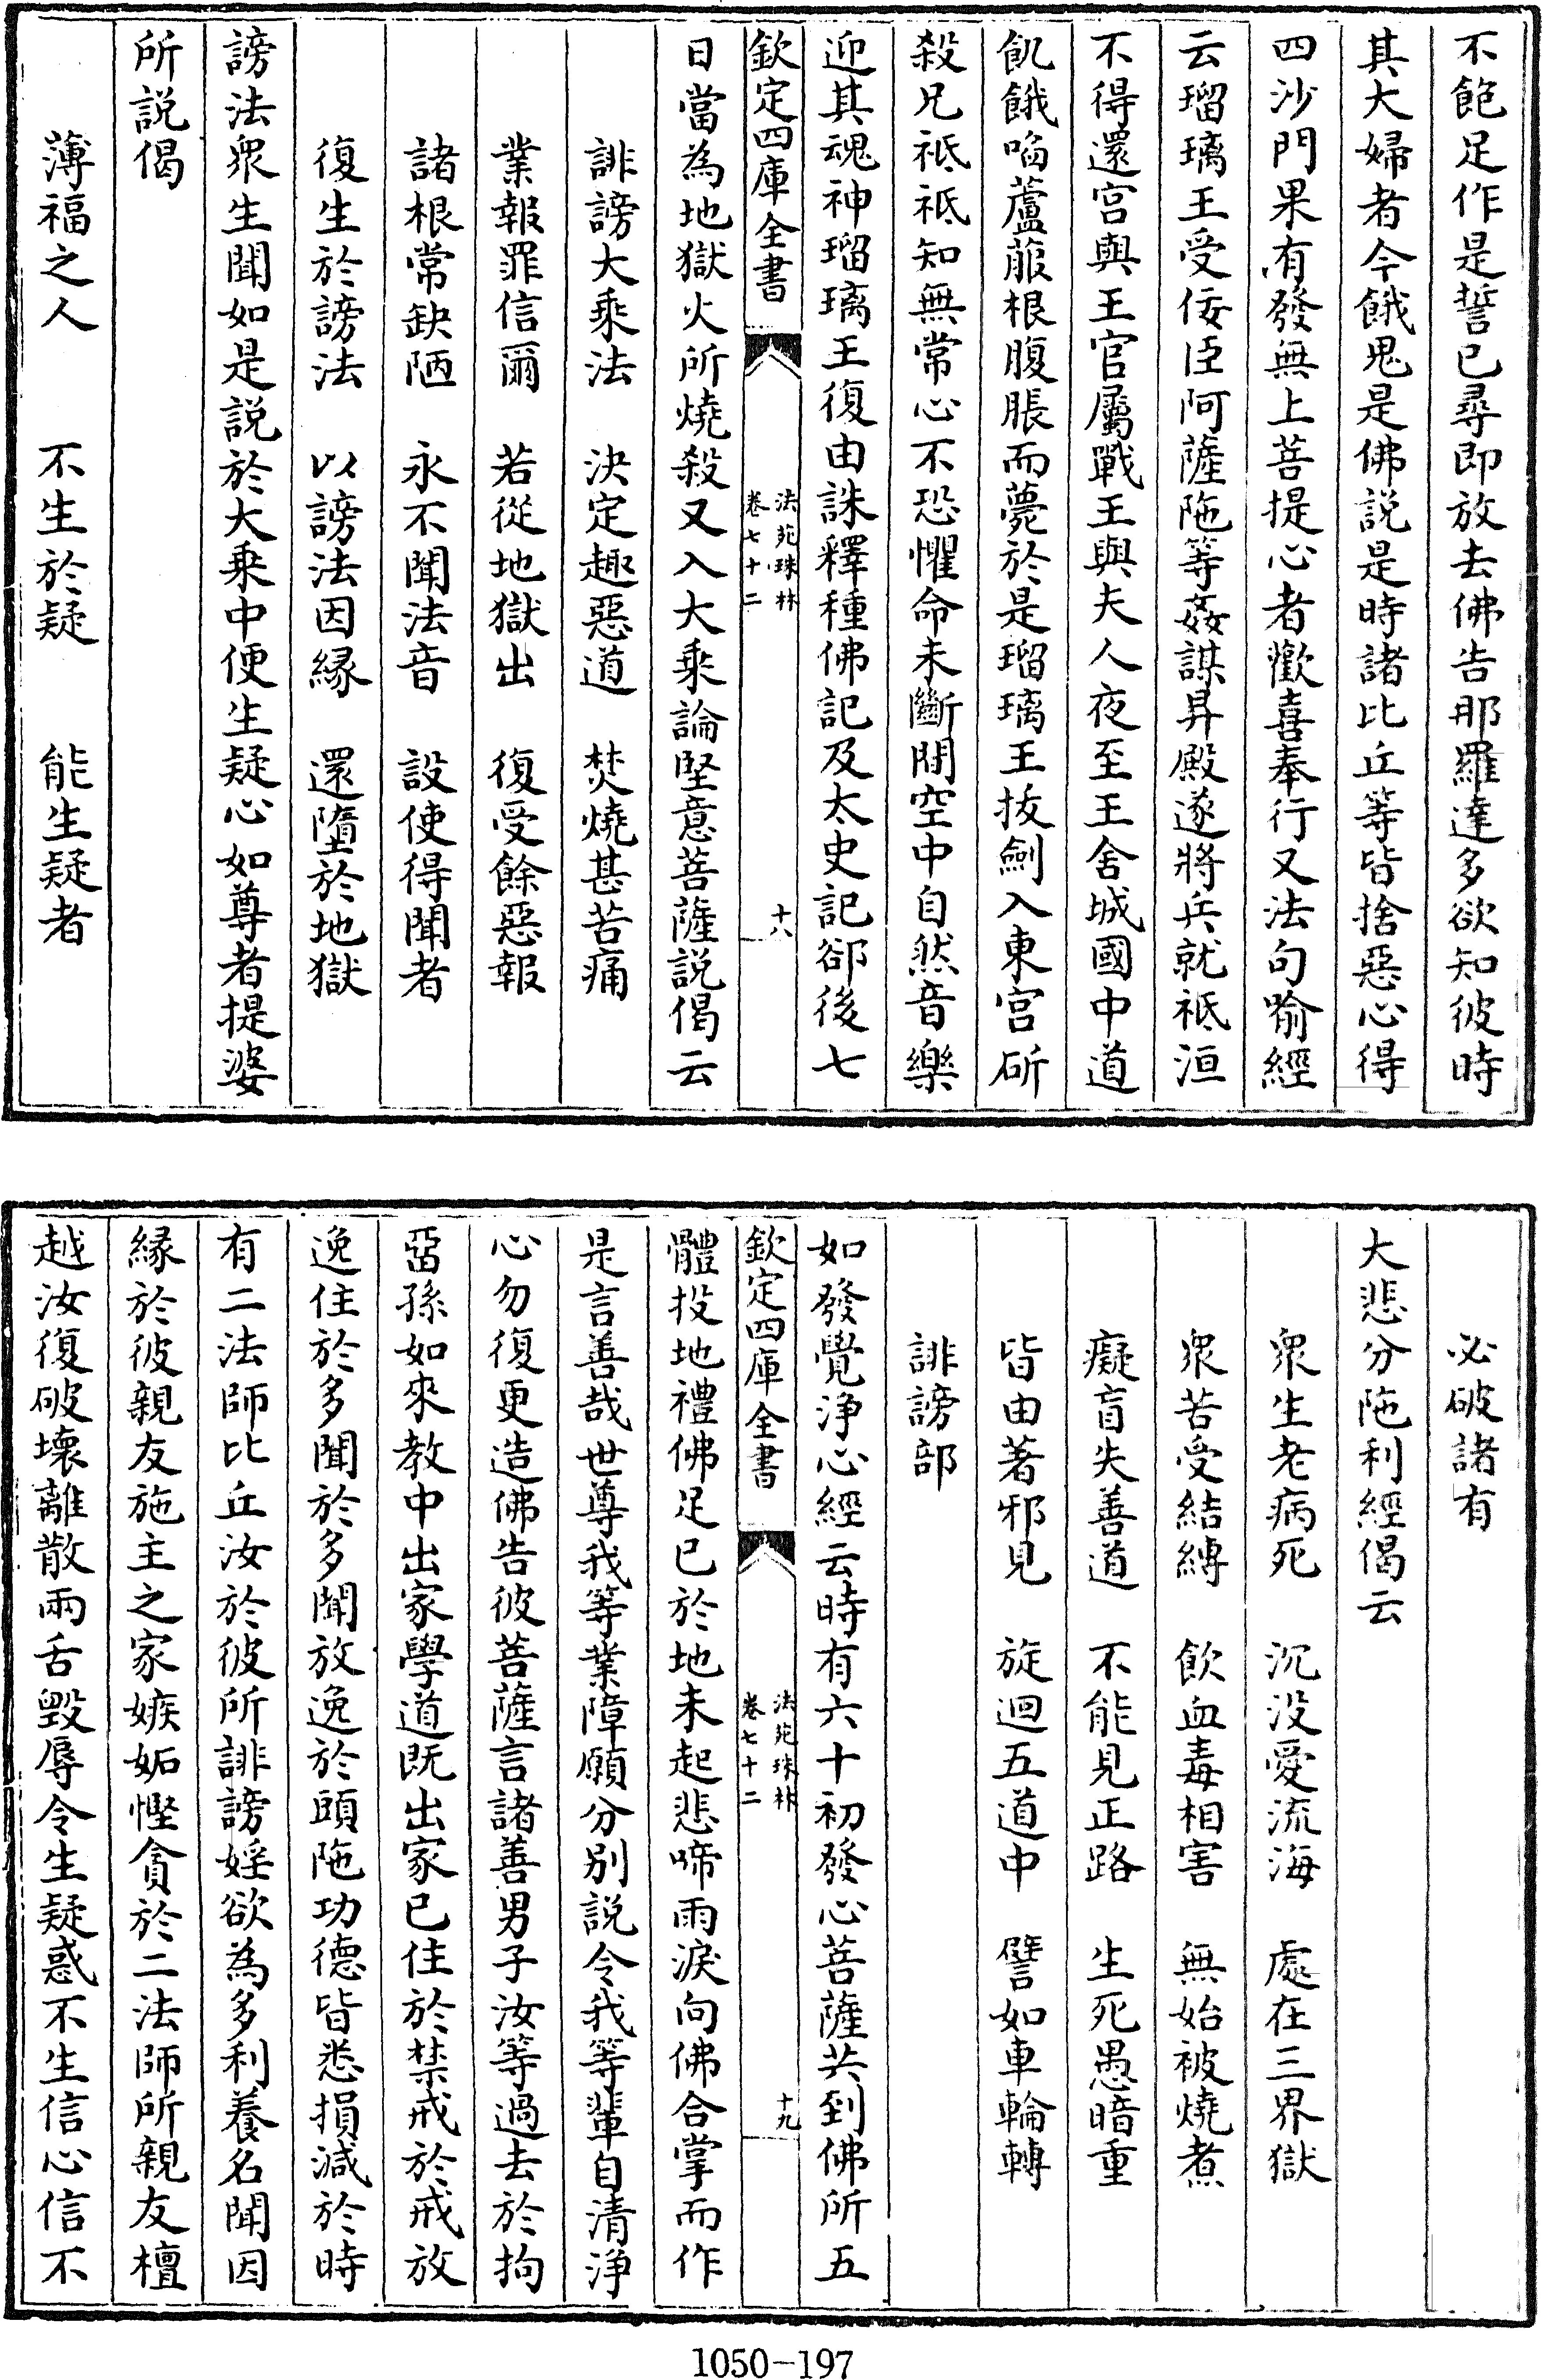 不飽足作是誓已尋即放去佛告那羅達多欲知彼時
其大婦者今餓鬼是佛説是時諸比丘等皆捨惡心得
四沙門果有發無上菩提心者歡喜奉行又法句喻經
云瑠璃王受佞臣阿薩陁等姦謀昇殿遂將兵就祗洹
不得還宫與王官屬戰王與夫人夜至王舍城國中道
飢餓啗蘆菔根腹脹而薨於是瑠璃王抜劍入東宫斫
殺兄祗祗知無常心不恐懼命未斷間空中自然音樂
迎其魂神瑠璃王復由誅釋種佛記及太史記郤後七
欽定四庫全書
法苑珠林
卷七十二
十八
日當為地獄火所燒殺又入大乗論堅意菩薩説偈云
誹謗大乗法　決定趣惡道　焚燒甚苦痛
業報罪信爾　若從地獄出　復受餘惡報
諸根常缺陋　永不聞法音　設使得聞者
復生於謗法　以謗法因縁　還墮於地獄
謗法衆生聞如是説於大乗中便生疑心如尊者提婆
所説偈
薄福之人　不生於疑　能生疑者
必破諸有
大悲分陁利經偈云
衆生老病死　沉没愛流海　處在三界獄
衆苦受結縛　飲血毒相害　無始被燒煮
癡盲失善道　不能見正路　生死愚暗重
皆由著邪見　旋迴五道中　譬如車輪轉
誹謗部
如發覺浄心經云時有六十初發心菩薩共到佛所五
欽定四庫全書
法苑珠林
卷七十二
十九
體投地禮佛足已於地未起悲啼雨淚向佛合掌而作
是言善哉世尊我等業障願分别説令我等輩自清浄
心勿復更造佛告彼菩薩言諸善男子汝等過去於拘
留孫如來教中出家學道既出家已住於禁戒於戒放
逸住於多聞於多聞放逸於頭陁功德皆悉損減於時
有二法師比丘汝於彼所誹謗婬欲為多利養名聞因
縁於彼親友施主之家嫉妬慳貪於二法師所親友檀
越汝復破壞離散兩舌毀辱令生疑惑不生信心信不
1050-197